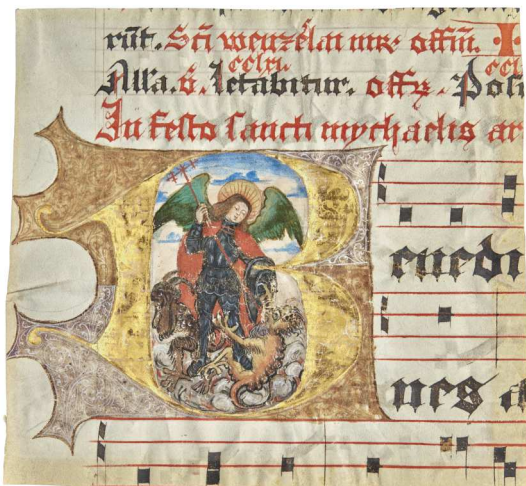 rūt. Sci wenzelai mr offm.
cclxi. ccl
Alla. G. letabitur. offy. Poli
In festo sancti mychaelis ar
B
enedi
nes